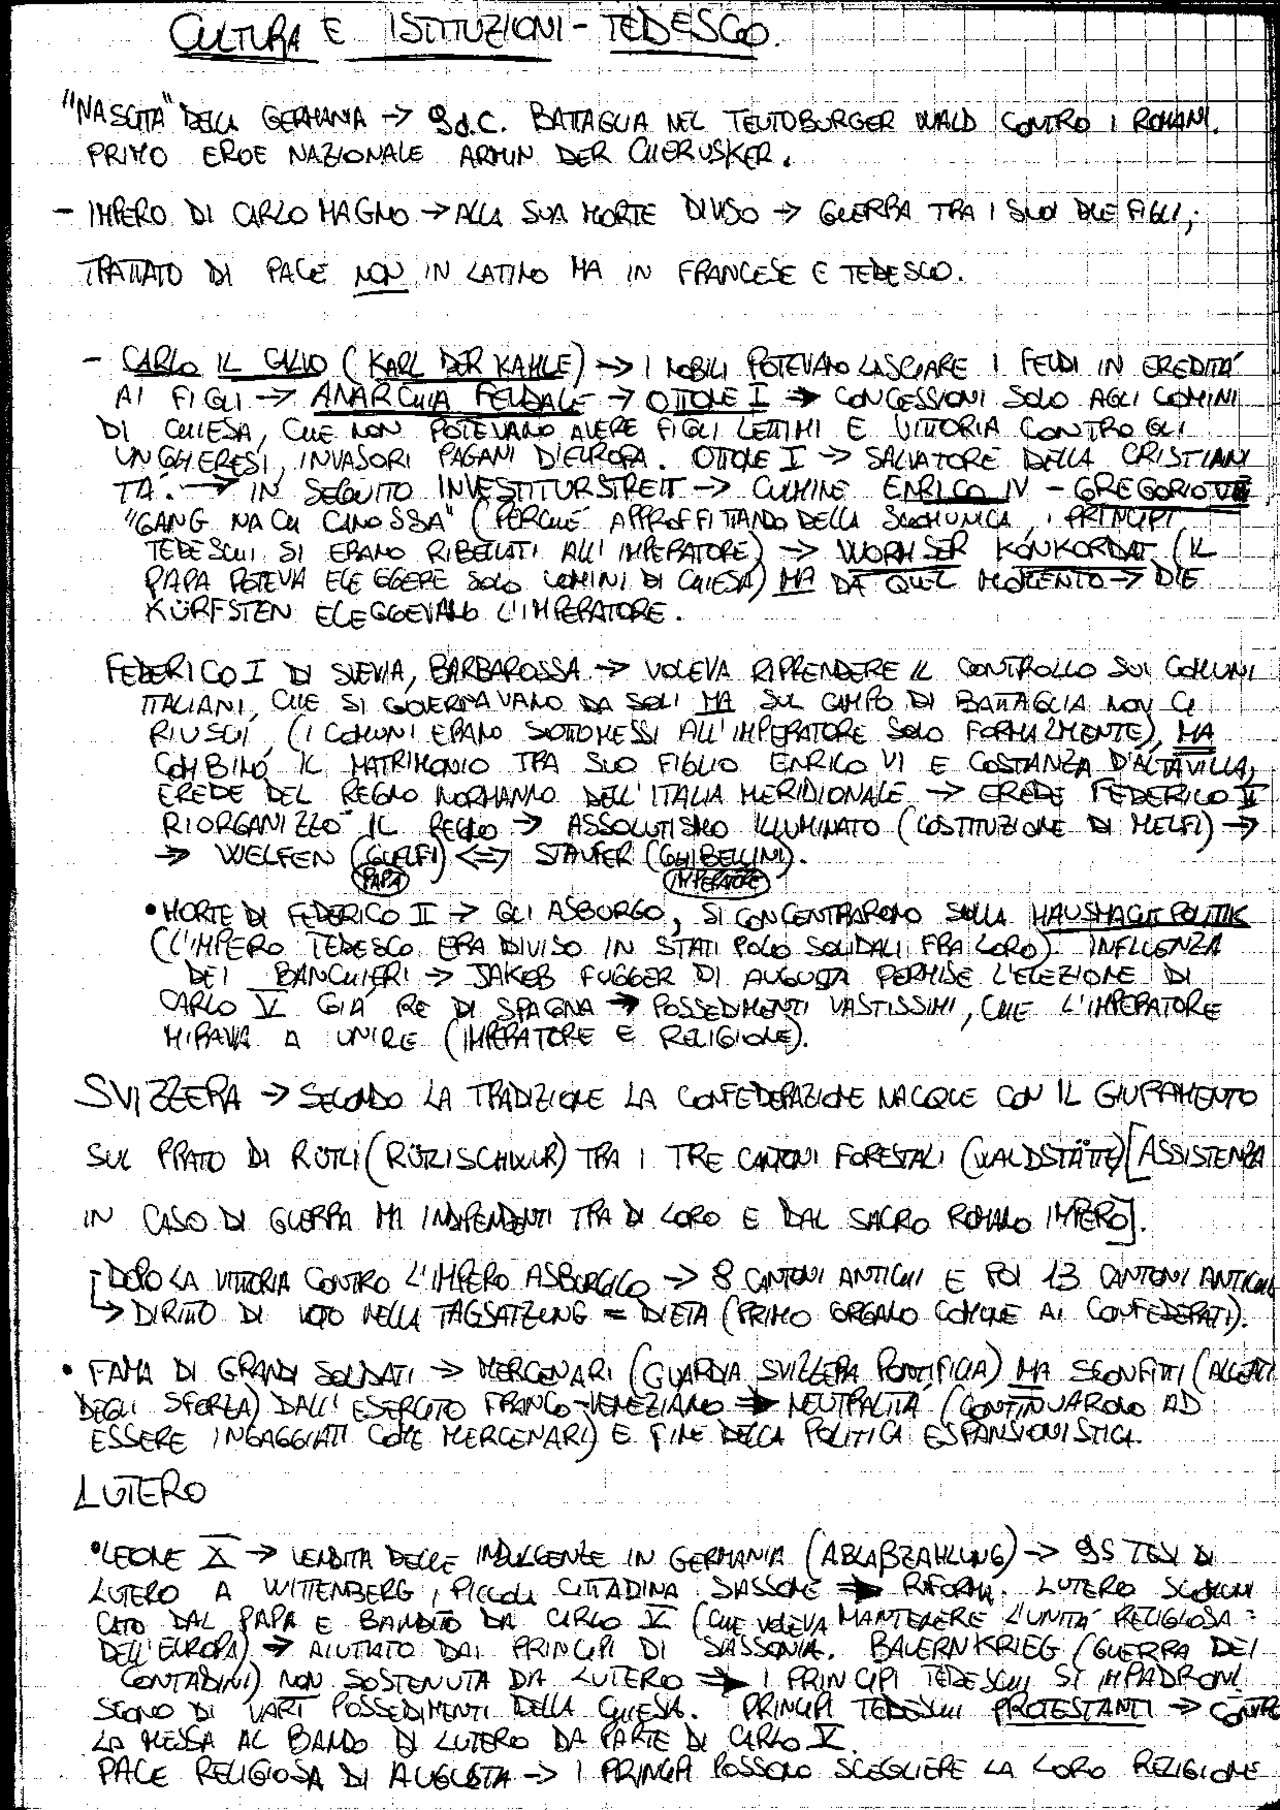 CULTURA E ISTITUZIONI - TEDESCO.
"NASCITA" DELLA GERMANIA → 9 d.C. BATTAGLIA NEL TEUTOBURGER WALD CONTRO I ROMANI.
PRIMO EROE NAZIONALE ARMIN DER CHERUSKER.
- IMPERO DI CARLO MAGNO → ALLA SUA MORTE DIVISO → GUERRA TRA I SUOI DUE FIGLI;
TRATTATO DI PACE NON IN LATINO MA IN FRANCESE E TEDESCO.
- CARLO IL CALVO (KARL DER KAHLE) → I NOBILI POTEVANO LASCIARE I FEUDI IN EREDITÀ
AI FIGLI → ANARCHIA FEUDALE → OTTONE I → CONCESSIONI SOLO AGLI UOMINI
DI CHIESA, CHE NON POTEVANO AVERE FIGLI LEGITTIMI E VITTORIA CONTRO GLI
UNGHERESI, INVASORI PAGANI D'EUROPA. OTTONE I → SALVATORE DELLA CRISTIANI
TÀ. → IN SEGUITO INVESTITURSTREIT → CULMINE ENRICO IV - GREGORIO VII
"GANG NACH CANOSSA" (PERCHÉ APPROFITTANDO DELLA SCOMUNICA, I PRINCIPI
TEDESCHI SI ERANO RIBELLATI ALL'IMPERATORE) → WORMSER KONKORDAT (IL
PAPA POTEVA ELEGGERE SOLO UOMINI DI CHIESA) MA DA QUEL MOMENTO → DIE
KÜRFSTEN ELEGGEVANO L'IMPERATORE.
FEDERICO I DI SVEVIA, BARBAROSSA → VOLEVA RIPRENDERE IL CONTROLLO SUI COMUNI
ITALIANI, CHE SI GOVERNAVANO DA SOLI MA SUL CAMPO DI BATTAGLIA NON CI
RIUSCÌ, (I COMUNI ERANO SOTTOMESSI ALL'IMPERATORE SOLO FORMALMENTE), MA
COMBINÒ IL MATRIMONIO TRA SUO FIGLIO ENRICO VI E COSTANZA D'ALTAVILLA,
EREDE DEL REGNO NORMANNO DELL'ITALIA MERIDIONALE → EREDE FEDERICO II
RIORGANIZZÒ IL REGNO → ASSOLUTISMO ILLUMINATO (COSTITUZIONE DI MELFI) →
→ WELFEN (GUELFI) <=> STAUFER (GHIBELLINI).
PAPA IMPERATORE
• MORTE DI FEDERICO II → GLI ASBURGO, SI CONCENTRARONO SULLA HAUSMACHTPOLITIK
(L'IMPERO TEDESCO ERA DIVISO IN STATI POCO SOLIDALI FRA LORO). INFLUENZA
DEI BANCHIERI → JAKOB FUGGER DI AUGUSTA PERMISE L'ELEZIONE DI
CARLO V GIÀ RE DI SPAGNA → POSSEDIMENTI VASTISSIMI, CHE L'IMPERATORE
MIRAVA A UNIRE (IMPERATORE E RELIGIONE).
SVIZZERA → SECONDO LA TRADIZIONE LA CONFEDERAZIONE NACQUE CON IL GIURAMENTO
SUL PRATO DI RÜTLI (RÜTLISCHWUR) TRA I TRE CANTONI FORESTALI (WALDSTÄTTE) [ASSISTENZA
IN CASO DI GUERRA MA INDIPENDENTI TRA DI LORO E DAL SACRO ROMANO IMPERO].
DOPO LA VITTORIA CONTRO L'IMPERO ASBURGICO → 8 CANTONI ANTICHI E POI 13 CANTONI ANTICHI
↳ DIRITTO DI VOTO NELLA TAGSATZUNG = DIETA (PRIMO ORGANO COMUNE AI CONFEDERATI).
• FAMA DI GRANDI SOLDATI → MERCENARI (GUARDIA SVIZZERA PONTIFICIA) MA SCONFITTI (ALLEATI
DEGLI SFORZA) DALL'ESERCITO FRANCO-VENEZIANO → NEUTRALITÀ (CONTINUARONO AD
ESSERE INGAGGIATI COME MERCENARI) E FINE DELLA POLITICA ESPANSIONISTICA.
LUTERO
• LEONE X → VENDITA DELLE INDULGENZE IN GERMANIA (ABLAßZAHLUNG) → 95 TESI DI
LUTERO A WITTENBERG, PICCOLA CITTADINA SASSONE → RIFORMA. LUTERO SCOMUNI
CATO DAL PAPA E BANDITO DA CARLO V (CHE VOLEVA MANTENERE L'UNITÀ RELIGIOSA
DELL'EUROPA) → AIUTATO DAI PRINCIPI DI SASSONIA. BAUERNKRIEG (GUERRA DEI
CONTADINI) NON SOSTENUTA DA LUTERO → I PRINCIPI TEDESCHI SI IMPADRONI
SCONO DI VARI POSSEDIMENTI DELLA CHIESA. PRINCIPI TEDESCHI PROTESTANTI → CONTRO
LA MESSA AL BANDO DI LUTERO DA PARTE DI CARLO V.
PACE RELIGIOSA DI AUGUSTA → I PRINCIPI POSSONO SCEGLIERE LA LORO RELIGIONE